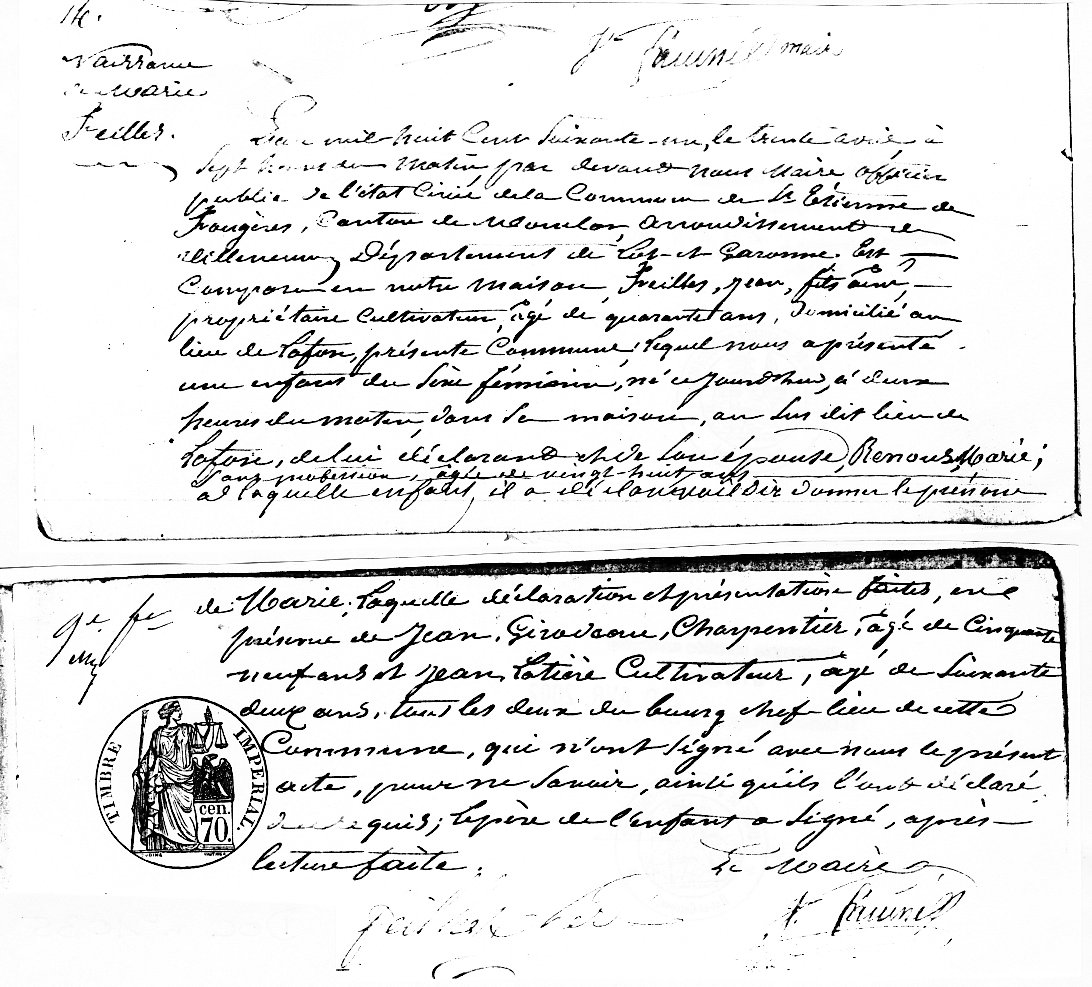 14.
Naissance
de Marie
Freilles.
L'an mil huit Cent Soixante-un, le trente avril, à
Sept heures du matin, par devant nous Maire officier
public de l'état Civil de la Commune de St Etienne de
Fougères, Canton de Monclar, Arrondissement de
Villeneuve, Département de Lot-et-Garonne. Est
Comparu en notre maison, Freilles, Jean, fils ainé,
propriétaire Cultivateur, âgé de quarante ans, Domicilié au
lieu de Lafon, présente Commune; lequel nous a présenté
une enfant du Sexe féminin, né ce Jourd'hui, à deux
heures du matin, dans Sa maison, au Sus dit lieu de
Lafon, de lui déclarant et de Son épouse, Renous, Marie;
Sans profession, âgée de vingt-huit ans
a laquelle enfant, il a déclaré vouloir donner le prénom
de Marie; laquelle déclaration et présentation faites, en
présence de Jean, Girodeau, Charpentier, âgé de Cinquante
neuf ans et Jean, Latière Cultivateur, âgé de Soixante
deux ans, tous les deux du bourg chef-lieu de cette
Commune, qui n'ont Signé avec nous le présent
acte, pour ne Savoir, ainsi qu'ils l'ont déclaré
de ce requis; le père de l'enfant a Signé, après
lecture faite.
Le Maire
TIMBRE IMPERIAL
cen.
70.